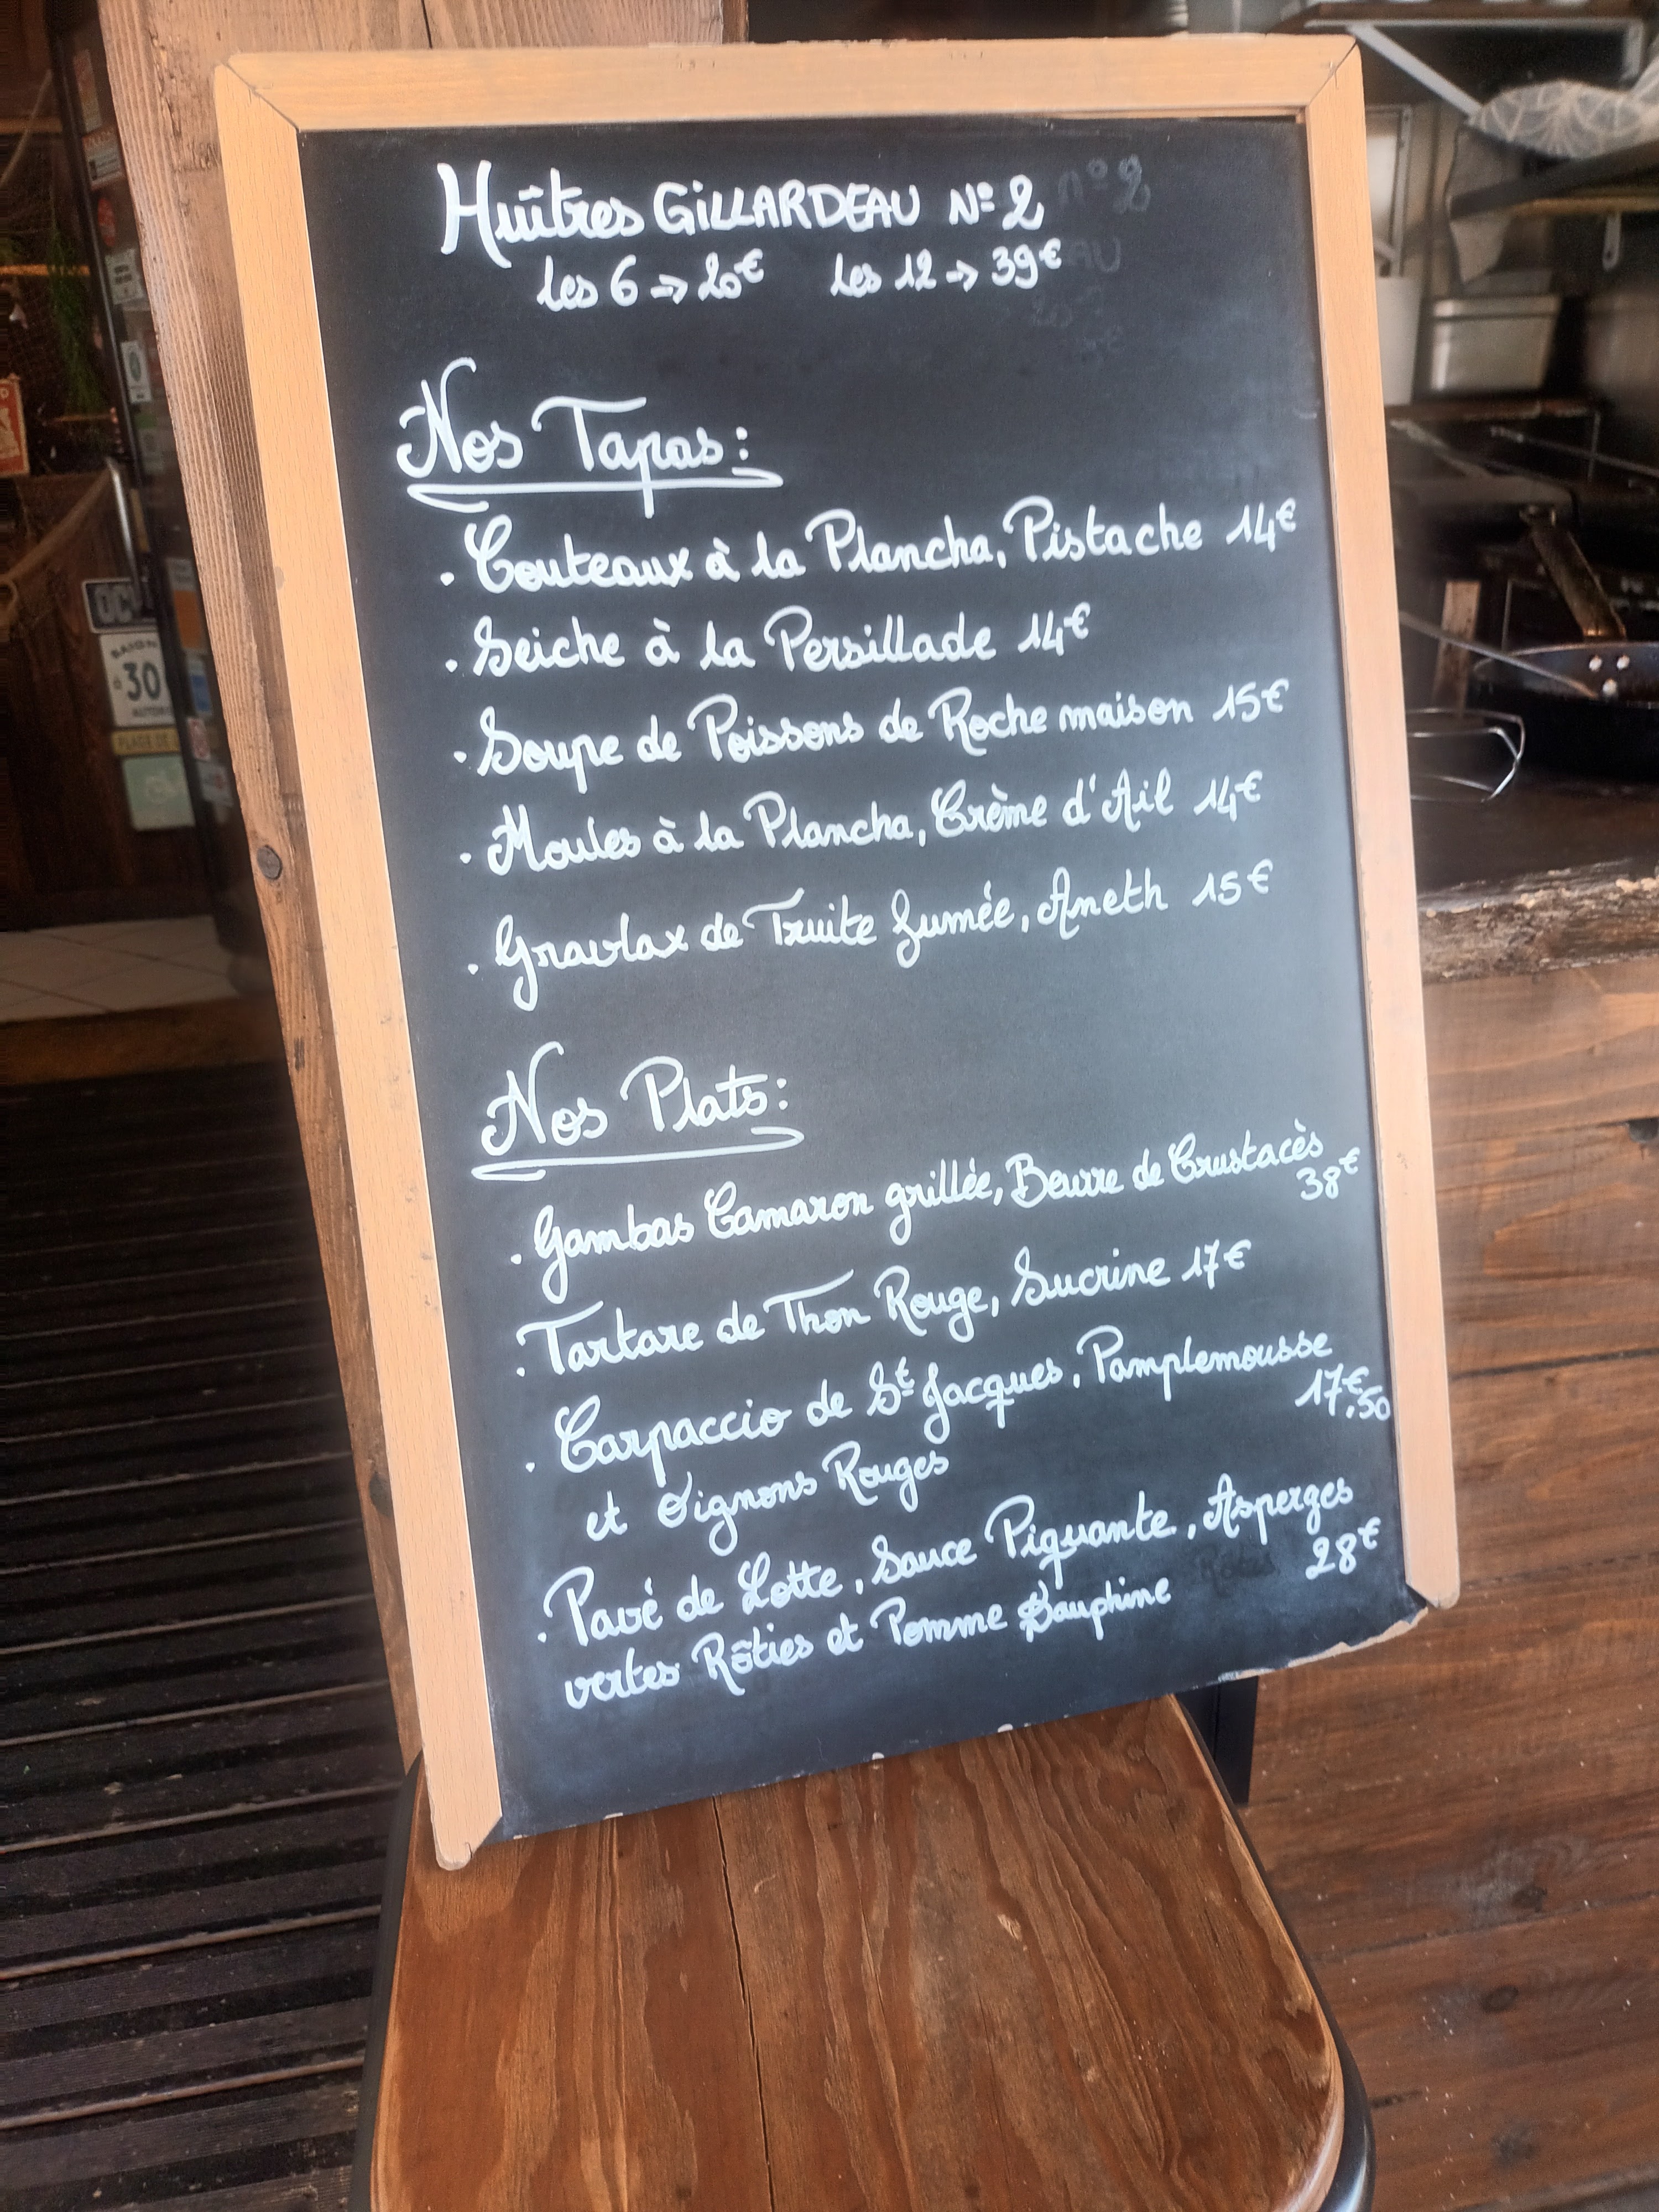 Huîtres GILLARDEAU N° 2
les 6 → 20€ les 12 → 39€
Nos Tapas :
. Couteaux à la Plancha, Pistache 14€
. Seiche à la Persillade 14€
. Soupe de Poissons de Roche maison 15€
. Moules à la Plancha, Crème d'Ail 14€
. Gravlax de Truite fumée, Aneth 15€
Nos Plats :
. Gambas Camaron grillée, Beurre de Crustacès
38€
. Tartare de Thon Rouge, Sucrine 17€
. Carpaccio de St Jacques, Pamplemousse
17€,50
et Oignons Rouges
. Pavé de Lotte, Sauce Piquante, Asperges
28€
vertes Rôties et Pomme Dauphine
30